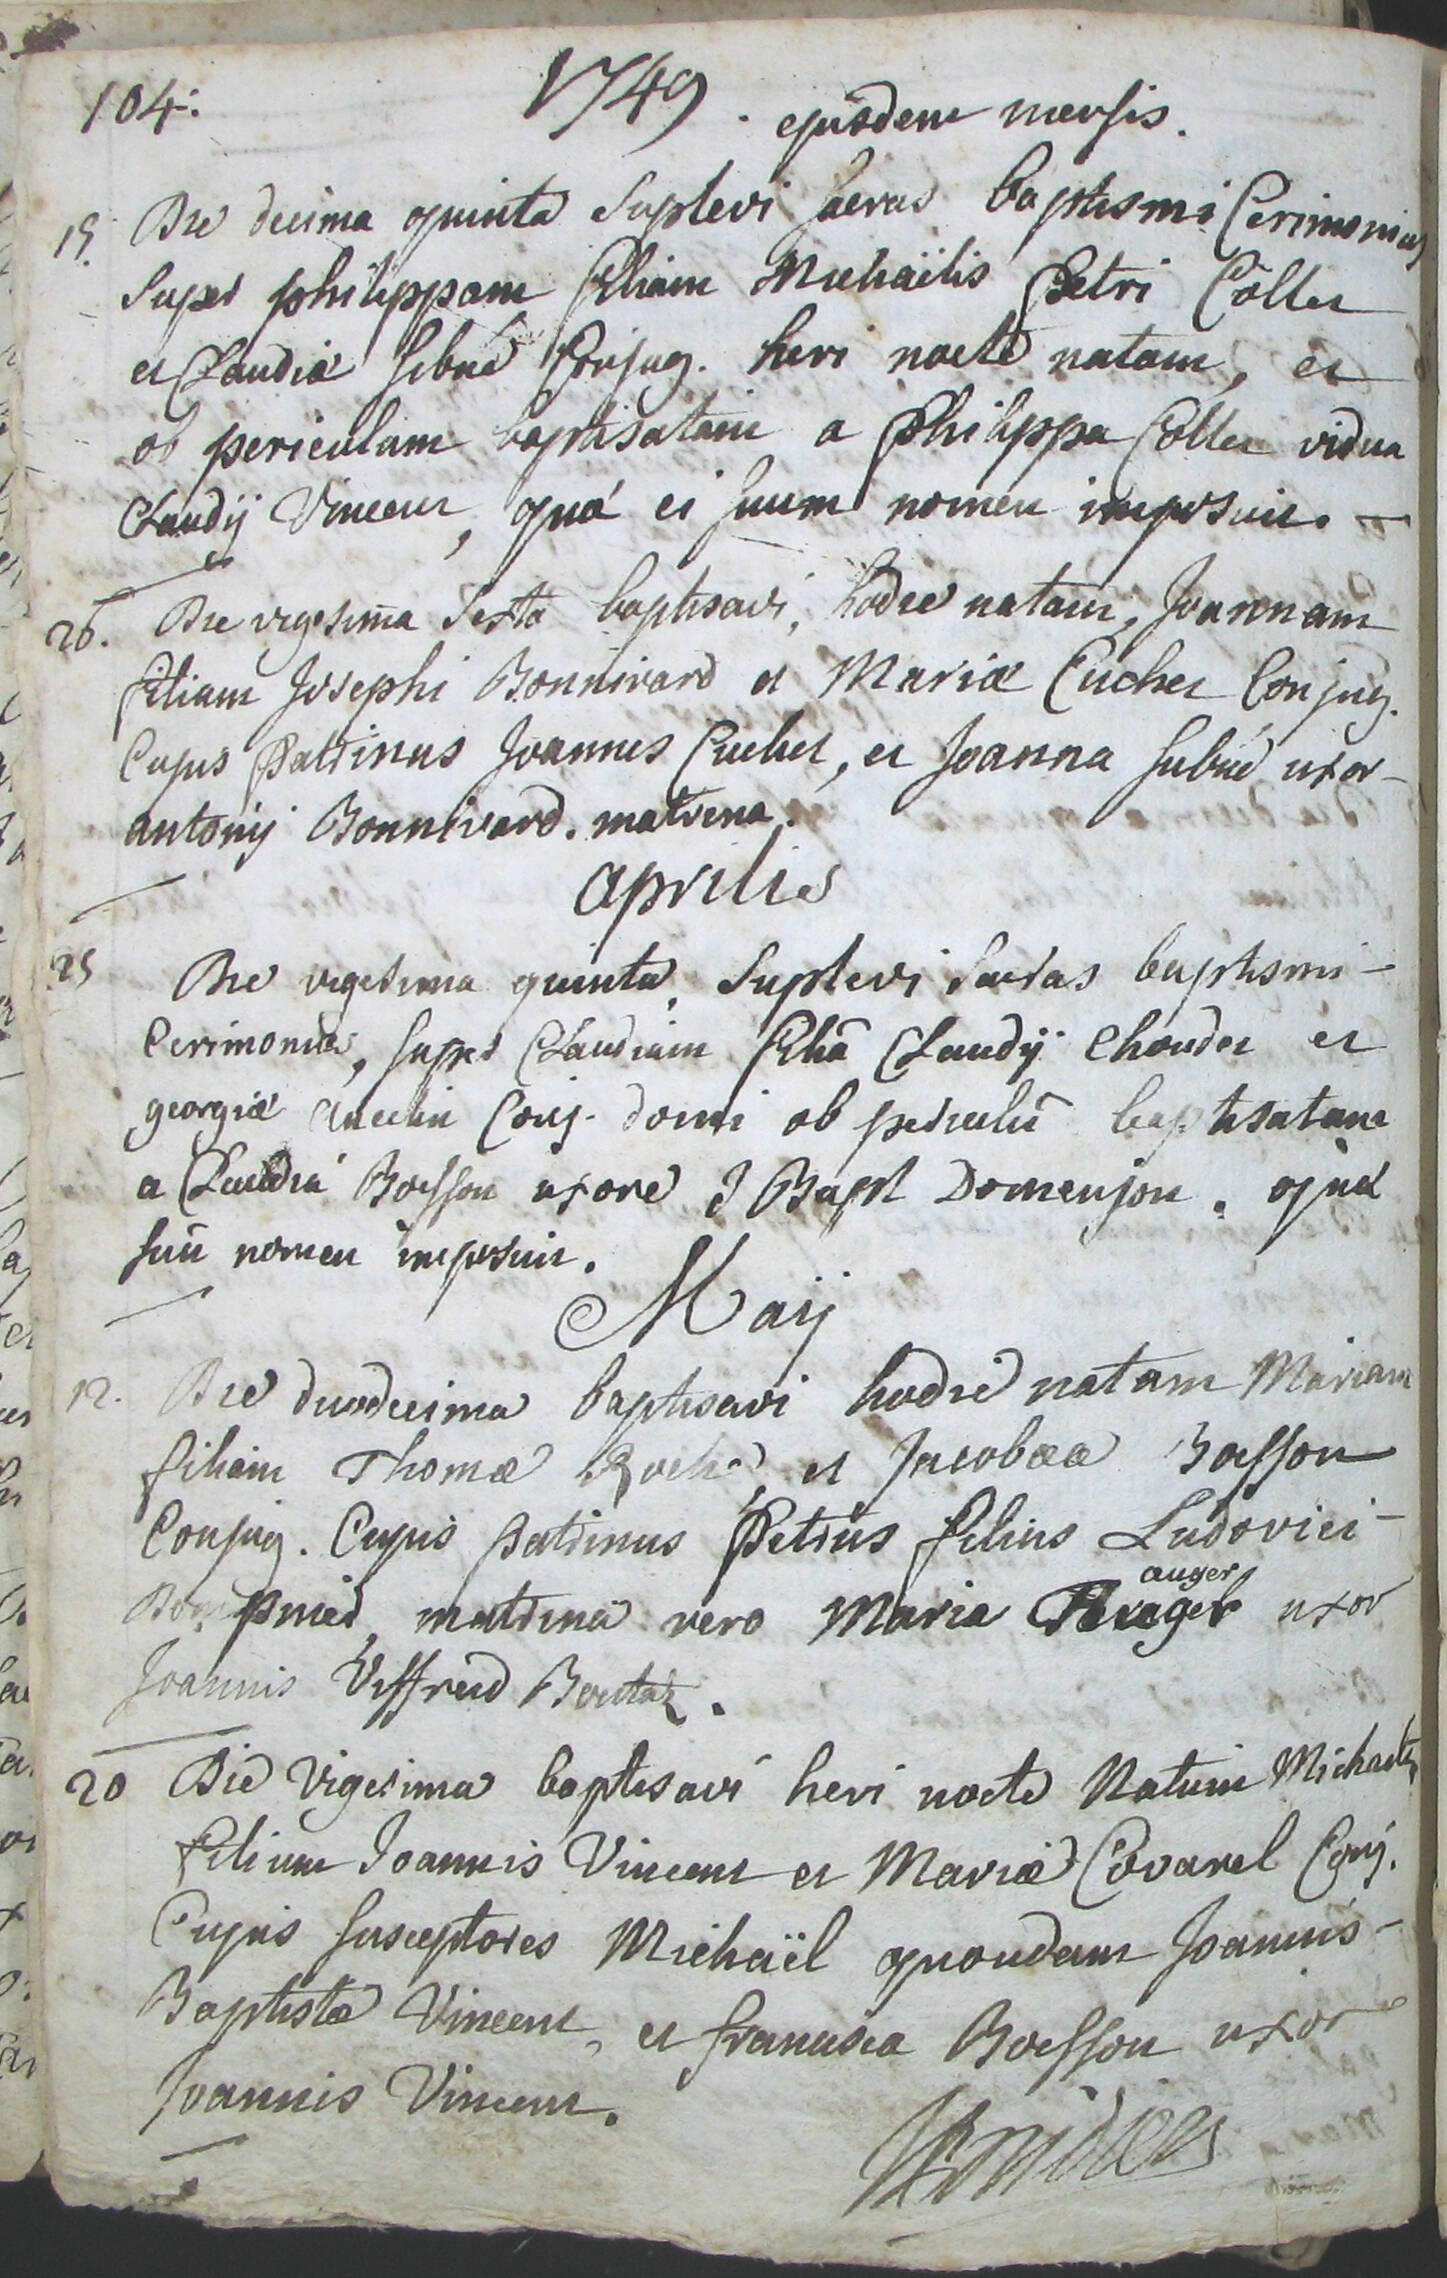 104:
1749. ejusdem mensis.
15. Die decima quinta suplevi sacras baptismi Cerimonias
super philippam filiam Michaëlis Petri Collet
et Claudiæ Conjug. heri nocte natam, et
ob periculum baptisatam a Philippa Collet vidua
Claudij Vincent, quæ ei suum nomen imposuit. -
26. Die vigesima sexta baptisavi, hodie natam, Joannam
filiam Josephi Bonnivard et Mariæ Cuchet Conjug.
Cujus Patrinus Joannes Cuchet, et Joanna uxor -
antonij Bonnivard. matrina.
aprilis
25 Die vigesima quinta, suplevi sacras baptismi -
Cerimonias, super Claudiam filiā Claudij Choudet et
georgiæ Conj. domi ob periculū baptisatam
a Claudia Boesson uxore J Bapt Domenjon. quæ
suū nomen imposuit.
Maij
12. Die duodecima baptisavi hodie natam Mariam
filiam Thomæ Roche, et Jacobææ Boesson
Conjug. Cujus Patrinus Petrus filius Ludovici -
matrina vero Maria auger uxor
Joannis Viffred Boutaz.
20 Die Vigesima baptisavi heri nocte Natum Michaelem
filium Joannis Vincent et Mariæ Covarel Conj.
Cujus susceptores Michaël quondam Joannis -
Baptistæ Vincent, et francisca Boesson uxor
Joannis Vincent.